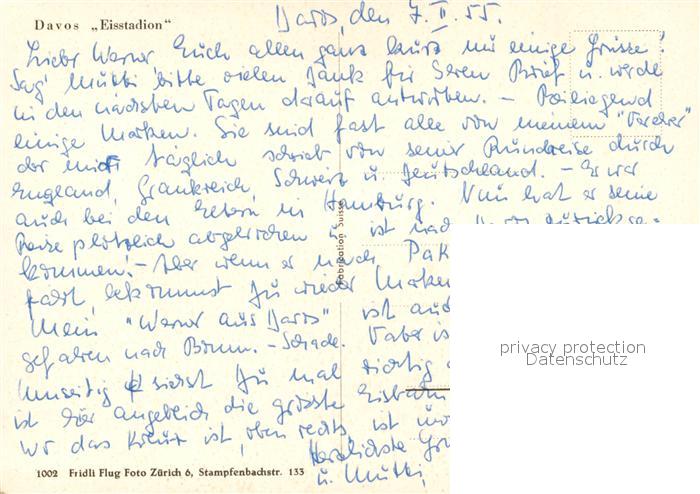 Davos „Eisstadion"
Davos, den 7. II. 55.
Lieber Werner Euch allen ganz kurz nur einige Grüsse!
Sag' Mutti bitte vielen Dank für Ihren Brief u. werde
in den nächsten Tagen darauf antworten. — Beiliegend
einige Marken. Sie sind fast alle von meinem "Verehrer"
der mir täglich schrieb von seiner Rundreise durch
England, Frankreich, Schweiz u. Deutschland. — Er war
auch bei den Eltern in Hamburg. Nun hat er seine
Reise plötzlich abgebrochen u. ist nach
kommen! — Aber wenn er nach Pak
fährt, bekommst Du wieder Marken
Mein "Werner aus Davos" ist
gefahren nach Bonn. — Schade.
Umseitig siehst Du mal richtig
ist hier angeblich die grösste Eisbahn
wo das Kreuz ist, oben rechts, ist
Herzlichste
u. Mutti,
Fabrication Suisse
privacy protection
Datenschutz
1002 Fridli Flug Foto Zürich 6, Stampfenbachstr. 133